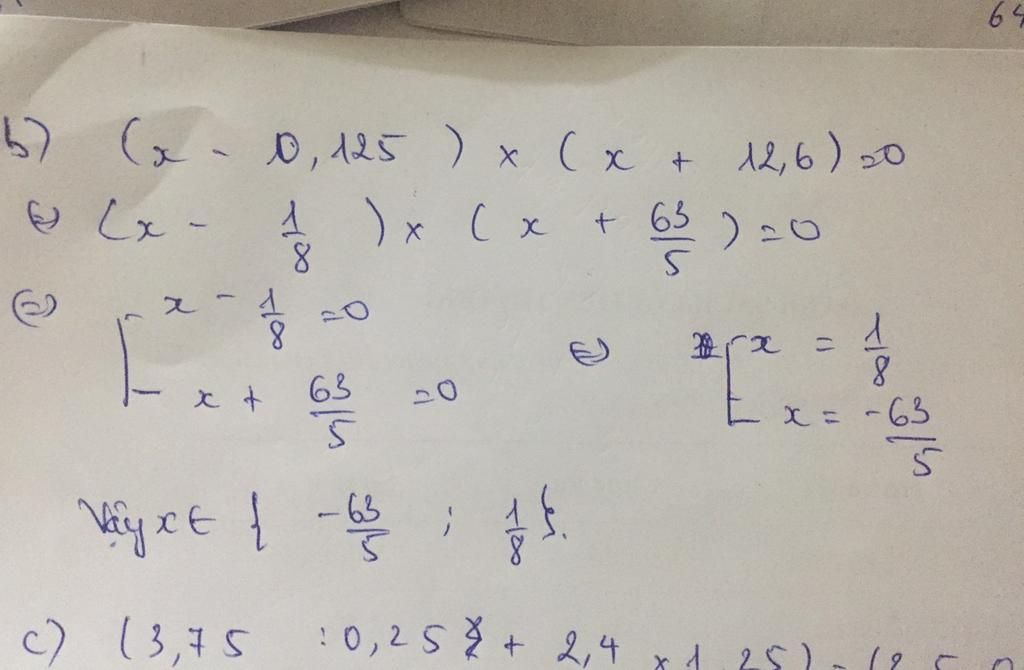 64
b) (x - 0,125) x (x + 12,6) = 0
⇔ (x - 1/8) x (x + 63/5) = 0
⇔ [ x - 1/8 = 0
x + 63/5 = 0
⇔ [ x = 1/8
x = -63/5
Vậy x ∈ { -63/5 ; 1/8 }.
c) (3,75 : 0,25 + 2,4 x 1,25) - (2,5